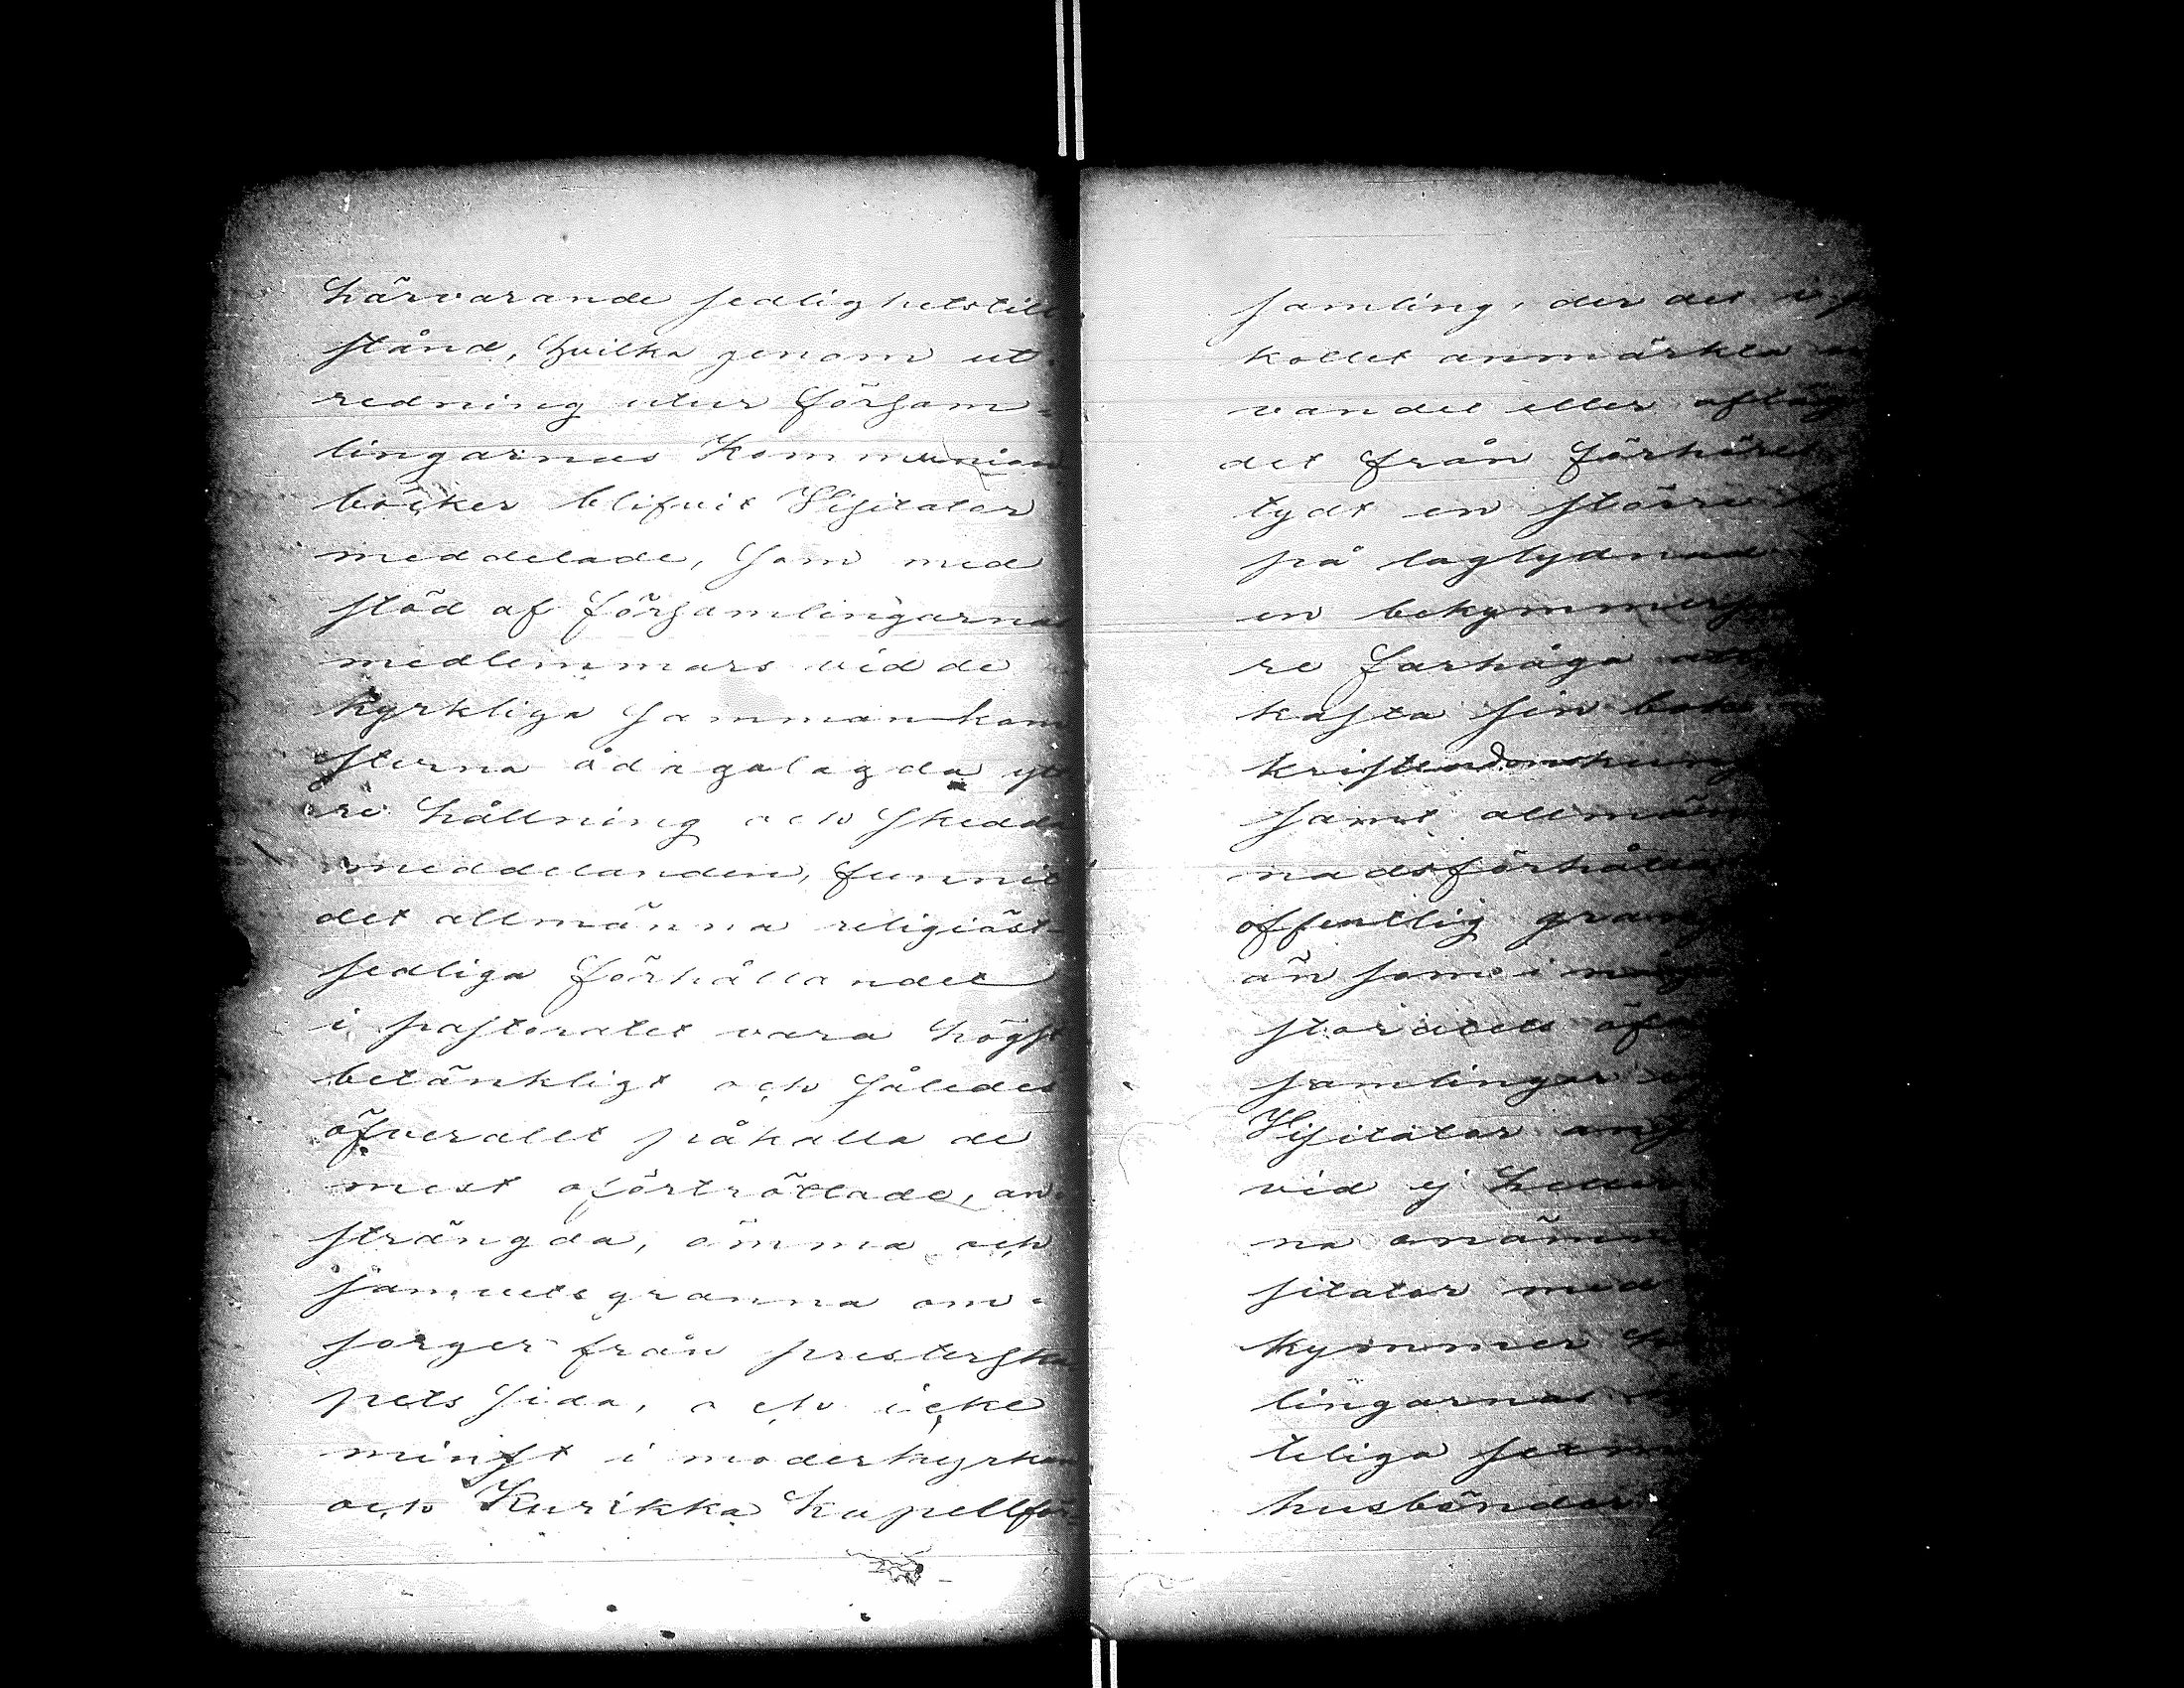 härvarande sedlighetstill-
stånd, hvilka genom ut-
redning utur försam-
lingarnas Kommunion
böcker blifvit Visitator
meddelade, som med
stöd af församlingarna
medlemmars vid de
kyrkliga samman kom
sterna ådagalagda yt
re hållning och skedda
meddelanden, funnit
det allmänna religiöst
sedliga förhållandet
i pastoratet vara högst
betänkligt och således
öfverallt påkalla de
mest oförtröttade, an-
strängda, ömma och
samvetsgranna om-
sorger från presterska
pets sida, och icke
minst i moderkyrkan
och Kurikka kapellför-
samling, der det i
kollet anmärkta
vandet eller afläg
det från förhöret
tydt en större
på laglydnad
en bekymmers
re farhåga
kasta sin bok
kristendomskun
samt allmän
nadsförhålla
offentlig gran
än som i någ
storatets öf
samlingar
Visitator
vid ej heller
na
sitator med
kymmer
lingarnas
teliga
husbönder